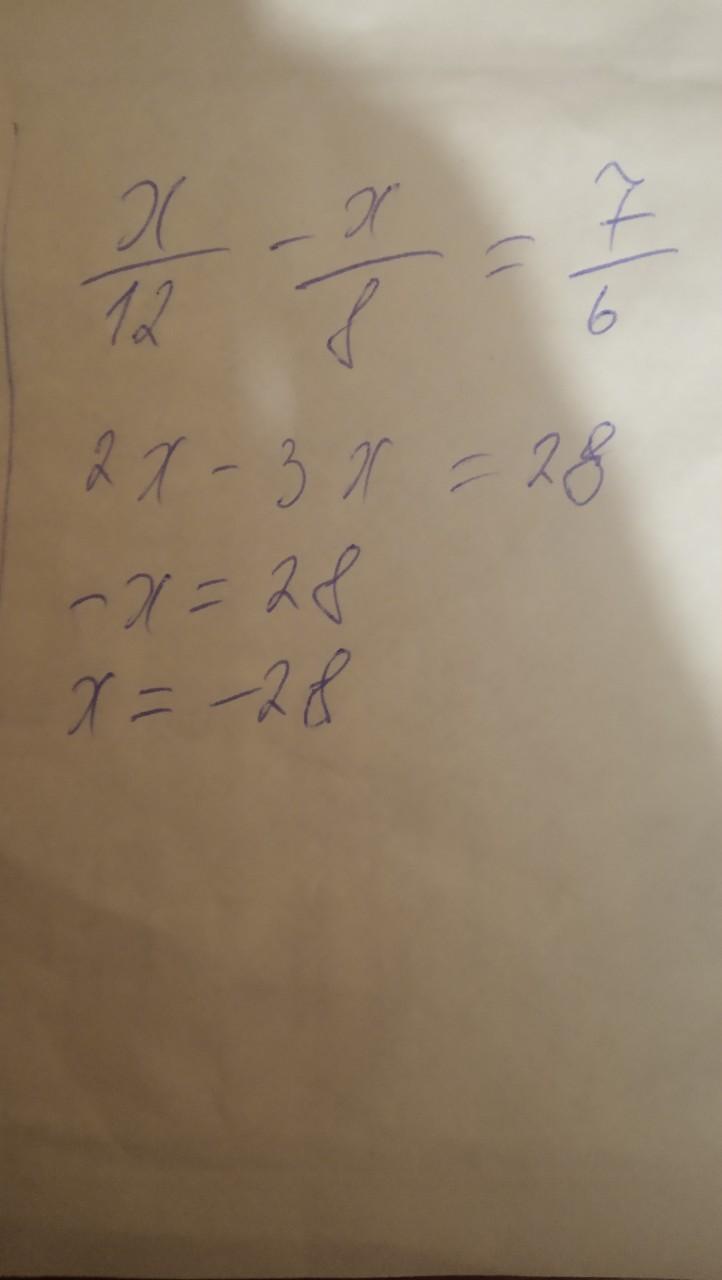 x/12 - x/8 = 7/6
2x - 3x = 28
-x = 28
x = -28